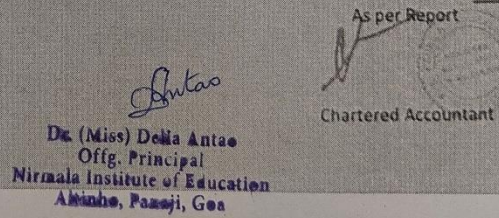 As per Report
Antao
Chartered Accountant
Dr. (Miss) Delia Antao
Offg. Principal
Nirmala Institute of Education
Altinho, Panaji, Goa